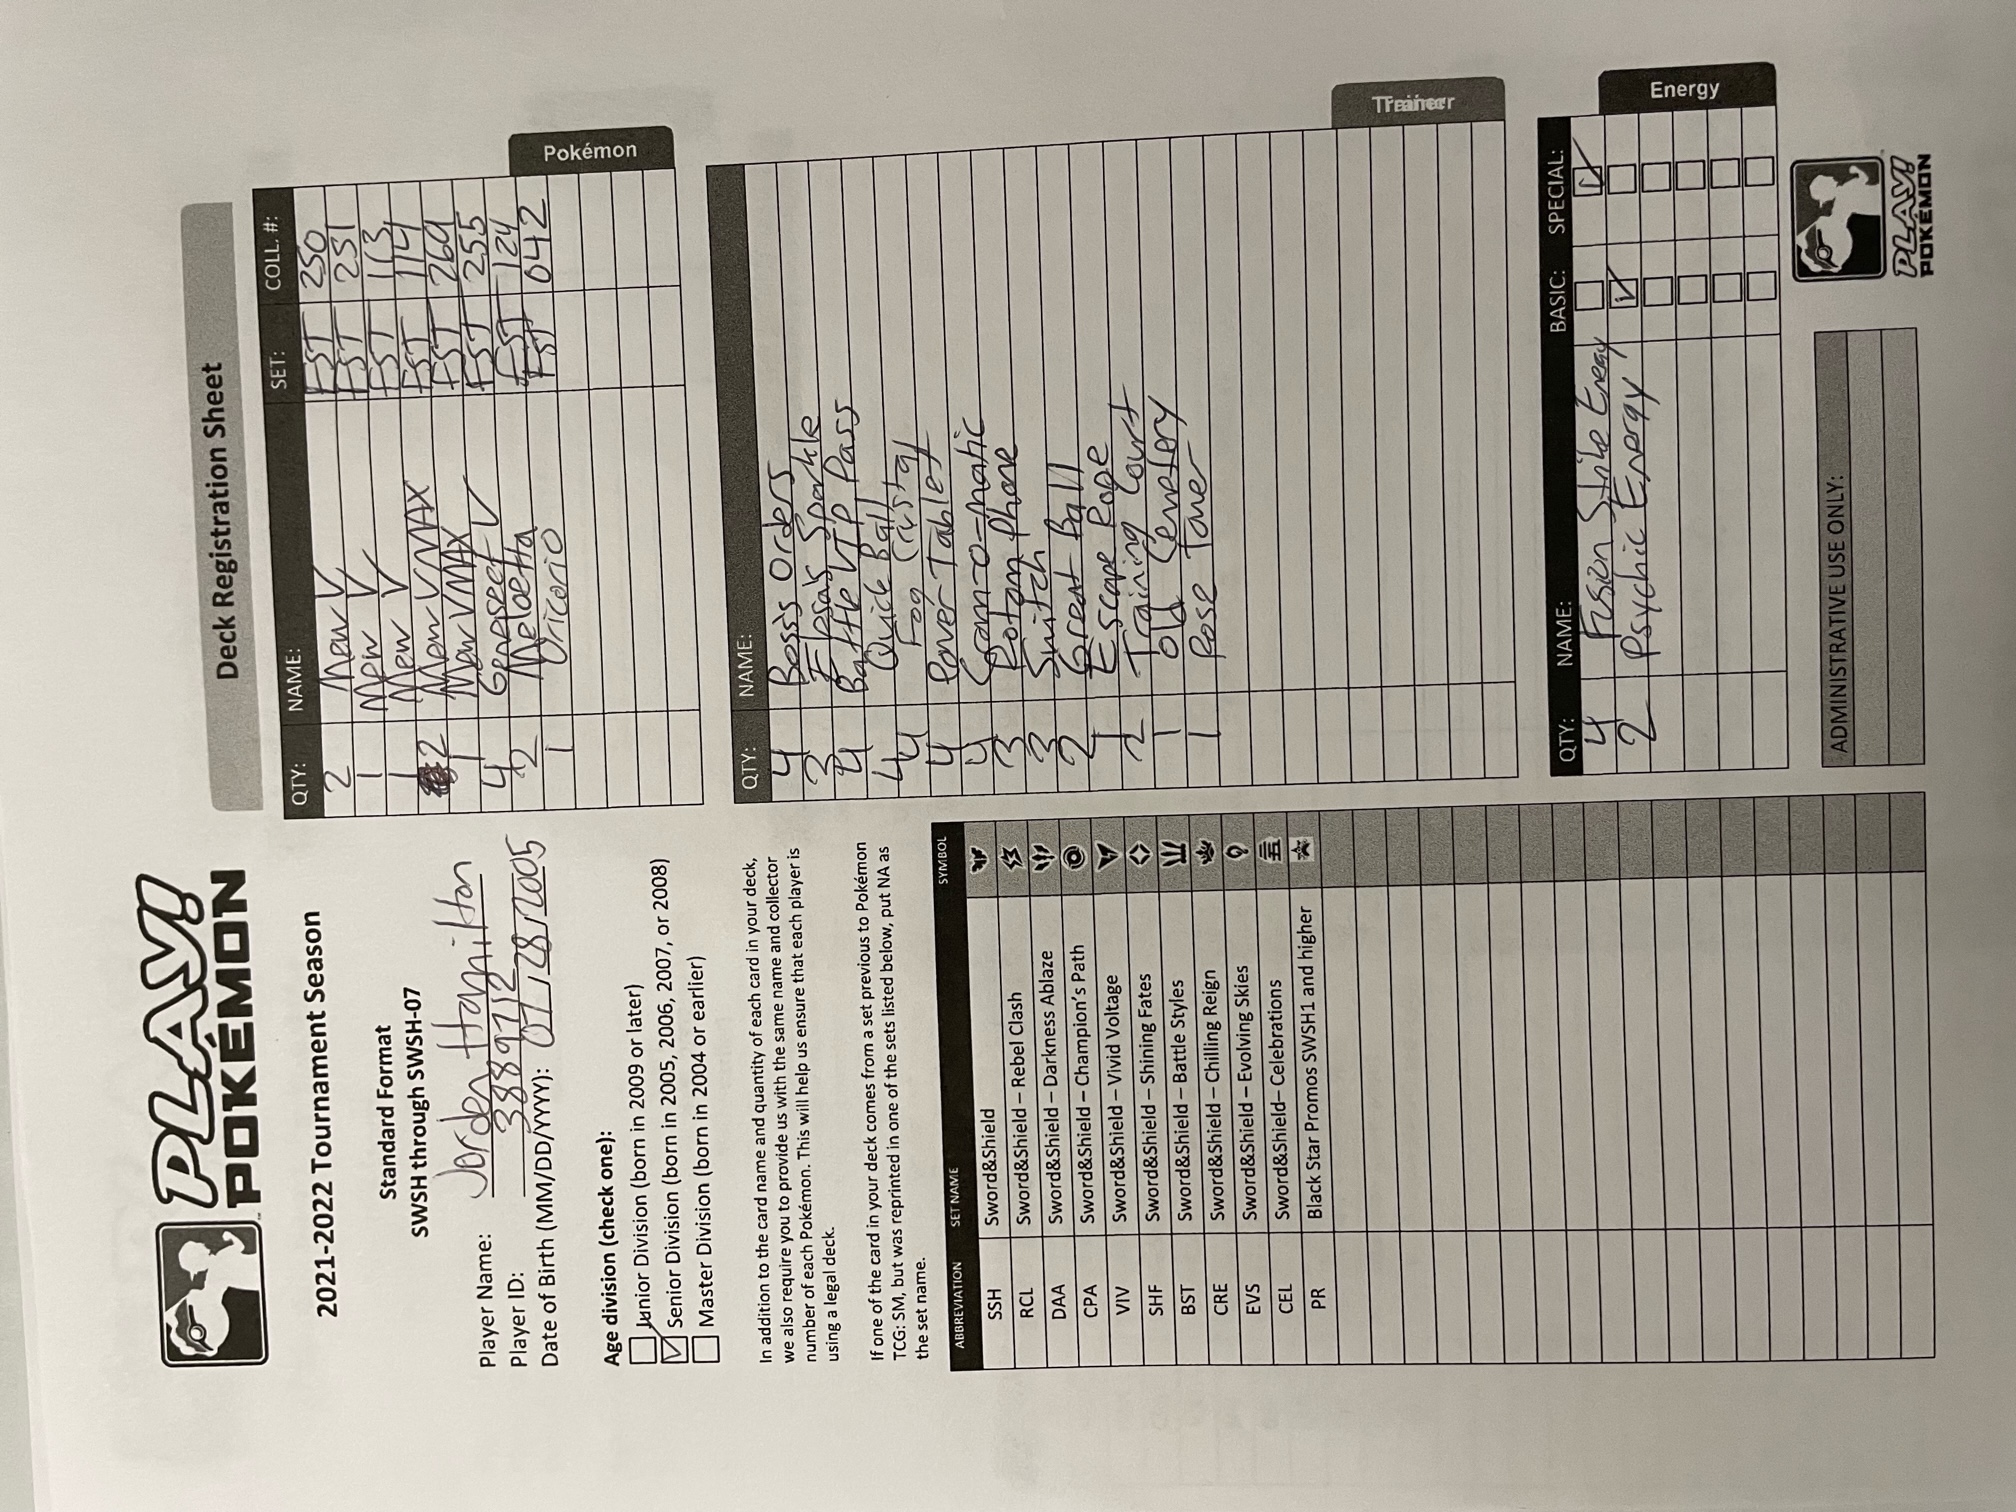 PLAY!
POKÉMON
2021-2022 Tournament Season
Standard Format
SWSH through SWSH-07
Player Name: Jorden Hamilton
Player ID: 3889712
Date of Birth (MM/DD/YYYY): 07/28/2005
Age division (check one):
Junior Division (born in 2009 or later)
Senior Division (born in 2005, 2006, 2007, or 2008)
Master Division (born in 2004 or earlier)
In addition to the card name and quantity of each card in your deck,
we also require you to provide us with the same name and collector
number of each Pokémon. This will help us ensure that each player is
using a legal deck.
If one of the card in your deck comes from a set previous to Pokémon
TCG: SM, but was reprinted in one of the sets listed below, put NA as
the set name.
ABBREVIATION SET NAME SYMBOL
SSH Sword&Shield
RCL Sword&Shield – Rebel Clash
DAA Sword&Shield – Darkness Ablaze
CPA Sword&Shield – Champion's Path
VIV Sword&Shield – Vivid Voltage
SHF Sword&Shield – Shining Fates
BST Sword&Shield – Battle Styles
CRE Sword&Shield – Chilling Reign
EVS Sword&Shield – Evolving Skies
CEL Sword&Shield– Celebrations
PR Black Star Promos SWSH1 and higher
Deck Registration Sheet
QTY: NAME: SET: COLL. #:
2 Mew V FST 250
1 Mew V FST 251
1 Mew V FST 113
2 Mew VMAX FST 114
1 Mew VMAX FST 269
4 Genesect V FST 255
2 Meloetta FST 124
1 Oricorio FST 042
Pokémon
QTY: NAME:
4 Boss's Orders
3 Elesa's Sparkle
4 Battle VIP Pass
4 Quick Ball
4 Fog Crystal
4 Power Tablet
4 Cram-o-matic
3 Rotom Phone
3 Switch
2 Great Ball
1 Escape Rope
2 Training Court
1 Old Cemetery
1 Rose Tower
Trainer
QTY: NAME: BASIC: SPECIAL:
4 Fusion Strike Eneagy
2 Psychic Energy
Energy
ADMINISTRATIVE USE ONLY:
PLAY!
POKÉMON